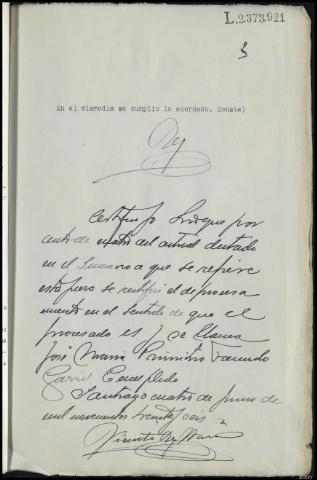 L.2373.921
3
En el mismodia se cumplio lo acordado. Conste)
Rey
Certifico Que por
auto de cuatro del actual dictado
en el Sumario a que se refiere
esta pieza se rectificó el de procesa
miento en el sentido de que el
procesado es y se llama
José Maria Primitivo Facundo
Santiago cuatro de junio de
mil novecientos treinta y seis
Vicente Rey